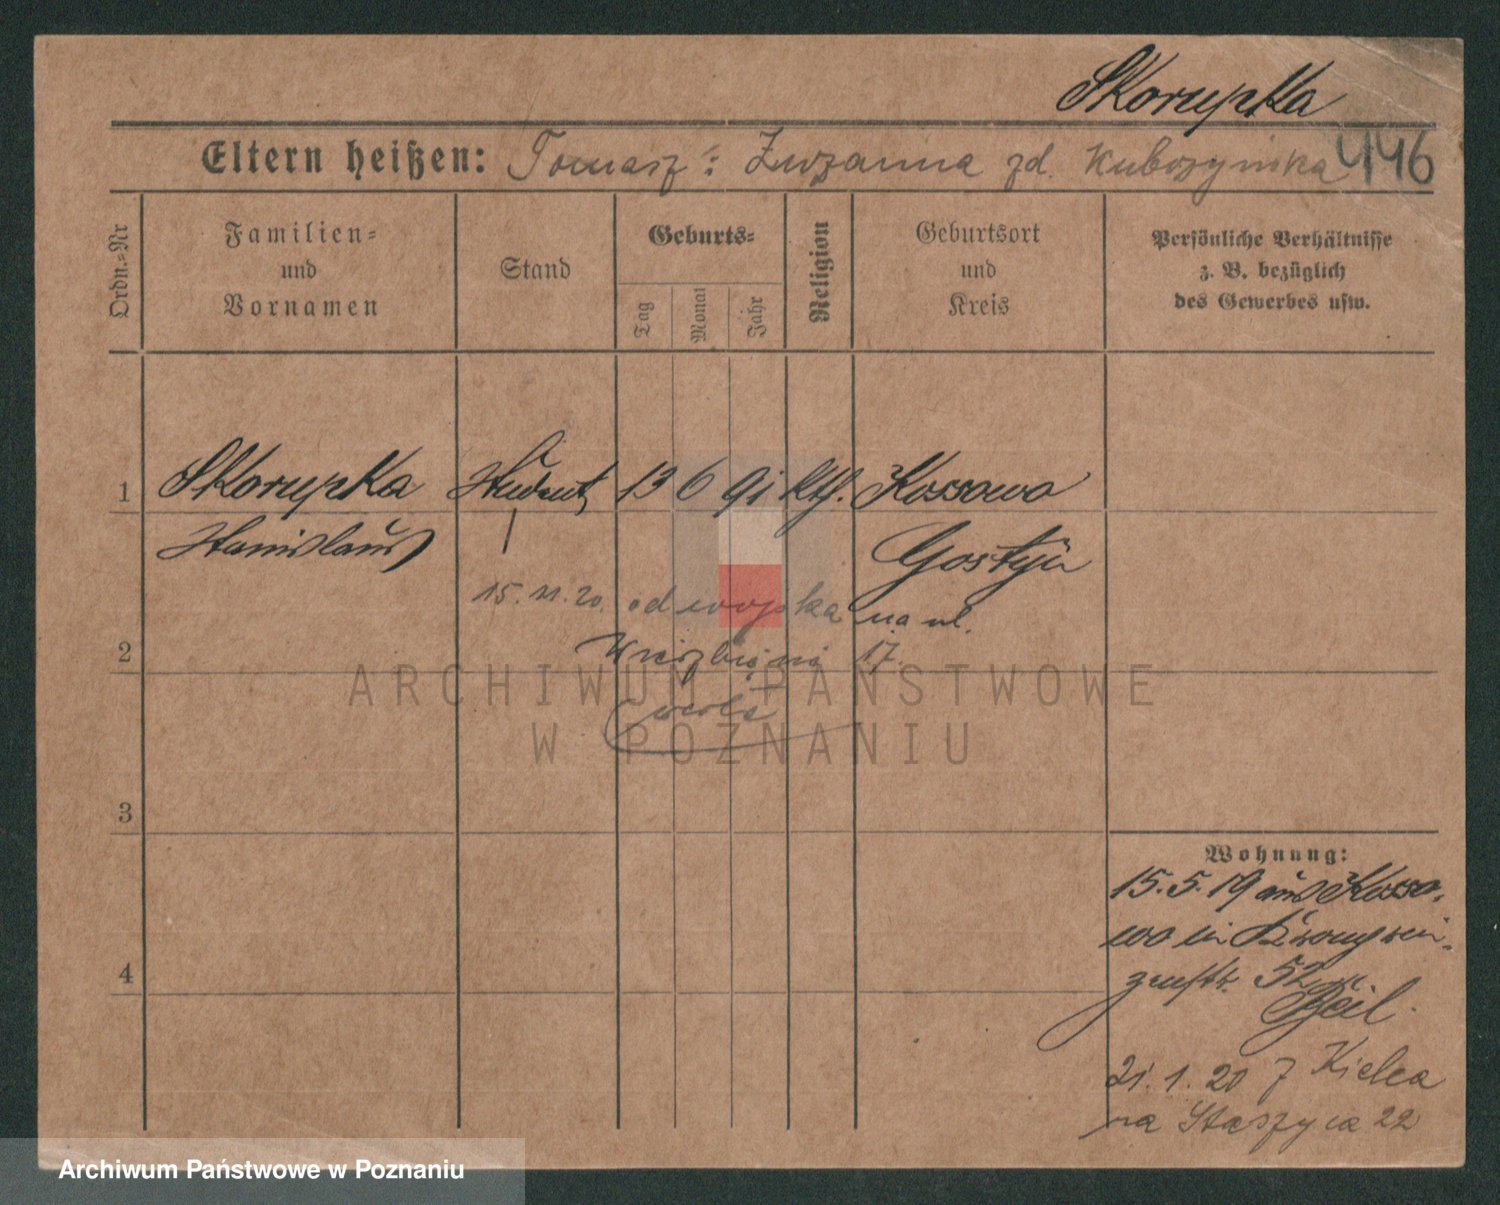 Skorupka
446
Eltern heißen: Tomasz i Zuzanna zd.
Ordn.=Nr
Familien=
und
Vornamen
Stand
Geburts=
Tag
Monat
Jahr
Religion
Geburtsort
und
Kreis
Persönliche Verhältnisse
z. B. bezüglich
des Gewerbes usw.
1 Skorupka Student 13 6 91 kth. Kossowo
Stanislaus Gostyń
15.11.20. od wojska na ul.
2 17.
3
4
Wohnung:
15.5.19 aus Kosso-
wo in Kronprin-
zenstr. 52
21.1.20 z Kielca
na Staszyca 22
ARCHIWUM PAŃSTWOWE
W POZNANIU
Archiwum Państwowe w Poznaniu